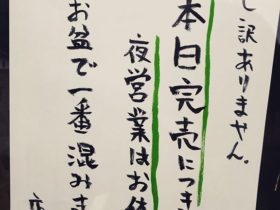 し訳ありません。
本日完売につき
夜営業はお休
お盆で一番混みま
店